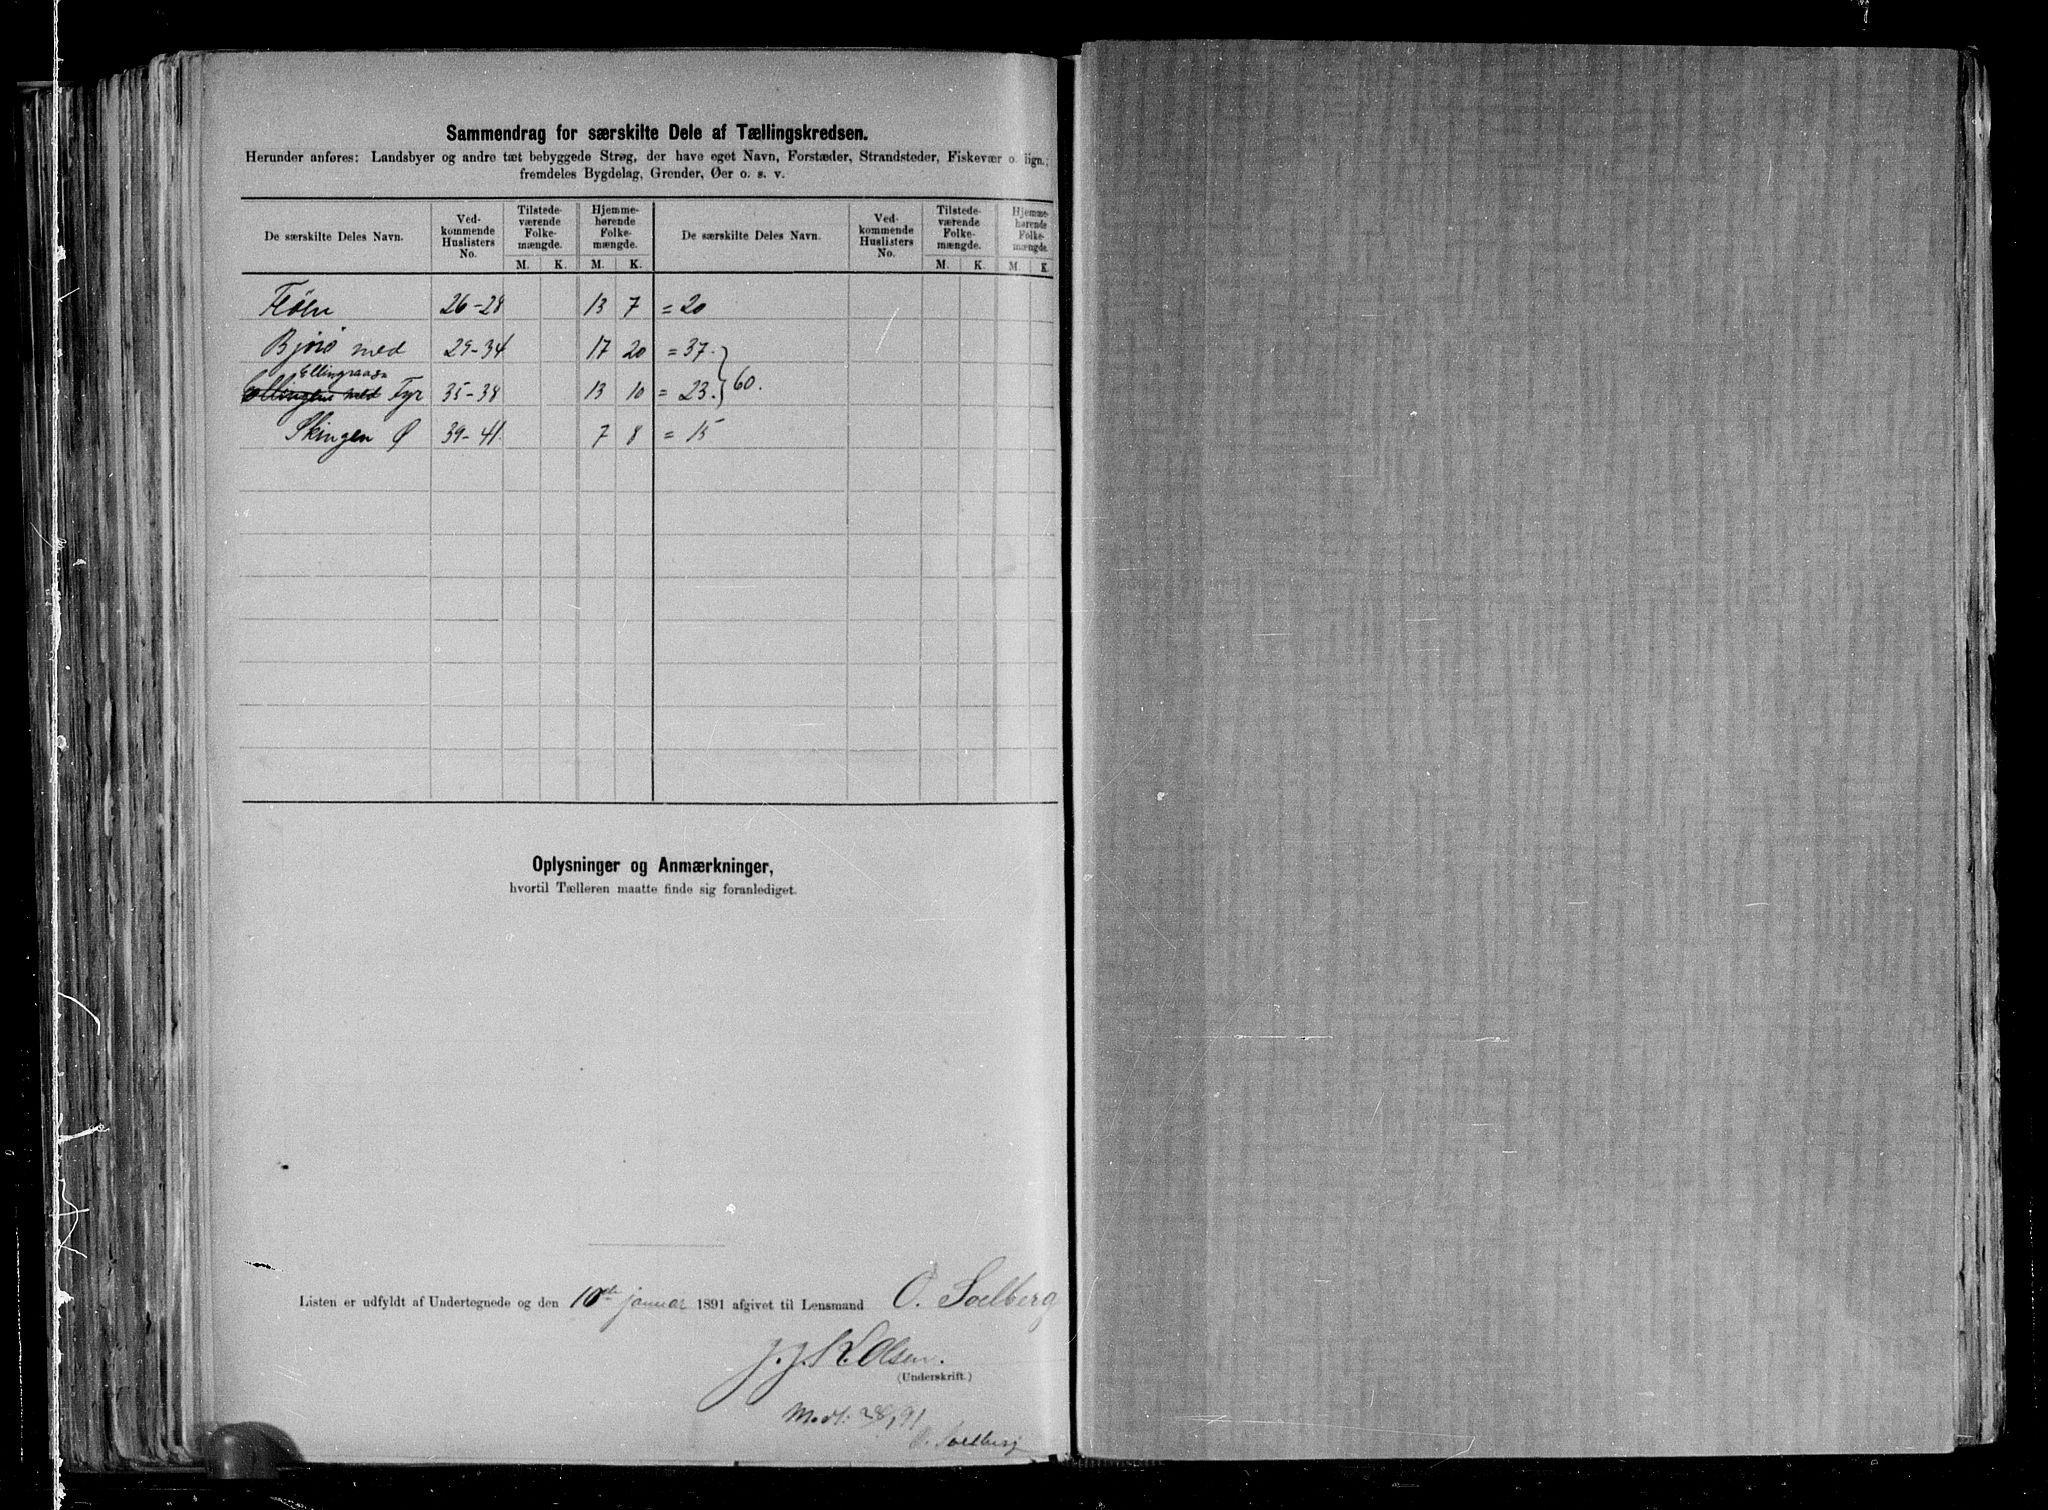 Sammendrag for særskilte Dele af Tællingskredsen.
Herunder anføres: Landsbyer og andre tæt bebyggede Strøg, der have eget Navn, Forstæder, Strandsteder, Fiskevær o. lign.;
fremdeles Bygdelag, Grender, Øer o. s. v.
De særskilte Deles Navn. Ved-kommende Huslisters No. Tilstede-værende Folke-mængde. Hjemme-hørende Folke-mængde. De særskilte Deles Navn. Ved-kommende Huslisters No. Tilstede-værende Folke-mængde. Hjemme-hørende Folke-mængde.
M. K. M. K. M. K. M. K.
26-28 13 7 = 20
Bjorö med 29-34 17 20 = 37.
Ellingraasa
Ellingen med Fyr 35-38 13 10 = 23. } 60.
Skingen Ø 39-41. 7 8 = 15
Oplysninger og Anmærkninger,
hvortil Tælleren maatte finde sig foranlediget.
Listen er udfyldt af Undertegnede og den 10de januar 1891 afgivet til Lensmand O. Soelberg
J. J. K. Olsen.
(Underskrift.)
Modt. 28/1 91
O. Soelberg